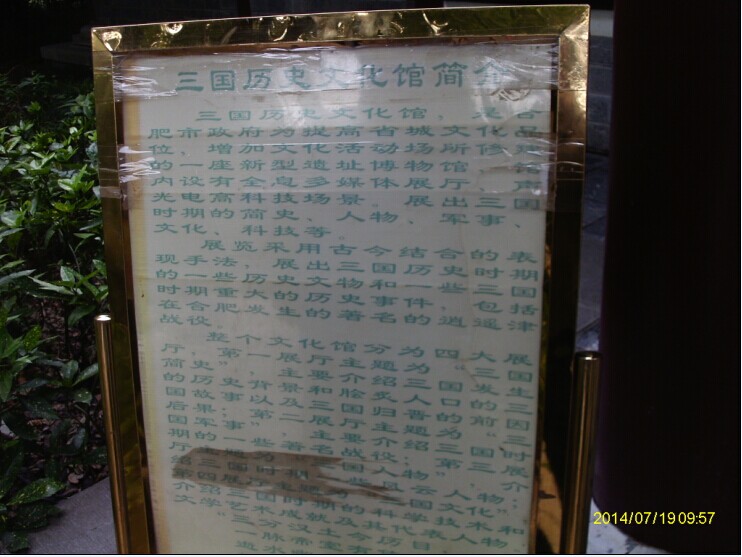 三国历史文化馆简介
三国历史文化馆，是合
肥市政府为提高省城文化品
位、增加文化活动场所修建
的一座新型遗址博物馆，馆
内设有全息多媒体展厅、声
光电高科技场景。展出三国
时期的简史、人物、军事、
文化、科技等。
展览采用古今结合的表
现手法，展出三国历史时期
的一些历史文物和一些三国
时期重大的历史事件，包括
在合肥发生的著名的逍遥津
战役。
整个文化馆分为四大展
厅，第一展厅主题为“三国
简史”，主要介绍三国发生
的历史背景和脍炙人口的三
国故事以及三国归晋的前因
后果；第二展厅主题为“三
国军事”，主要介绍三国时
期的一些著名战役；第三展
厅
国人物”
绍三国时期一些风云人物；
第四展厅主题为
国文化”
介绍三国时期的科学技术和
文学艺术成就及其代表人物
三分汉土今历目，
2014/07/19 09:57